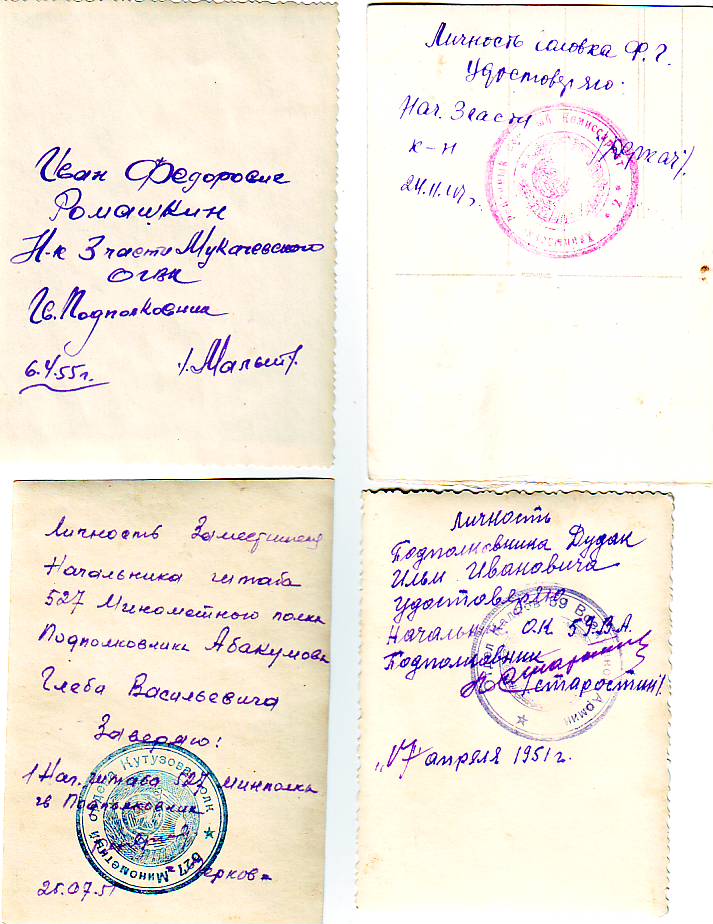 Иван Федорович
Ромашкин
Н-к 3 части Мукачевского
ОГВК
Гв. Подполковник
6.4.55г.
Личность Ф. Г.
Удостоверяю.
Нач. 3 части
к-н
Личность Заместителя
Начальника штаба
527 Минометного полка
Подполковника Абакумова
Глеба Васильевича
Заверяю!
Нач. штаба 527 минполка
гв Подполковник
25.07.51
527 Минометный ордена Кутузова полк
Личность
Подполковника Дудак
Ильи Ивановича
удостоверяю
Начальник О.К 59.В.А.
Подполковник
/Старостин/
"17" апреля 1951г.